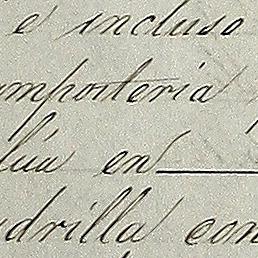 e incluso
mposteria
lúa en
udrilla con